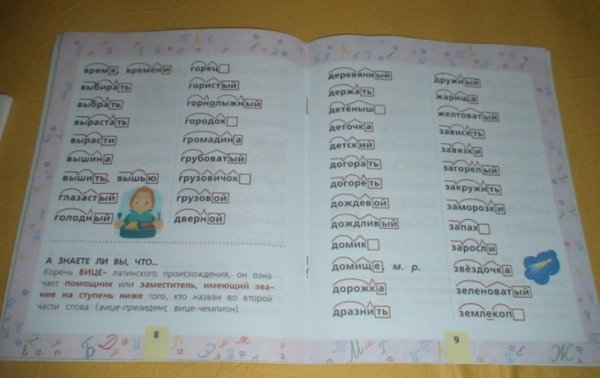 время, времени
выбирать
выбрать
вырастать
вырасти
вышина
вышить, вышью
глазастый
голодный
горец
гористый
горнолыжный
городок
громадина
грубоватый
грузовичок
грузовой
дверной
А ЗНАЕТЕ ЛИ ВЫ, ЧТО...
Корень ВИЦЕ- латинского происхождения, он озна-
чает помощник или заместитель, имеющий зва-
ние на ступень ниже того, кто назван во второй
части слова (вице-президент, вице-чемпион).
8
деревянный
держать
детёныш
деточка
детский
догорать
догореть
дождевой
дождливый
домик
домище, м. р.
дорожка
дразнить
дружный
жарища
желтоватый
зависеть
завязки
загорелый
закружить
заморозки
запах
заросли
звёздочка
зеленоватый
землекоп
9